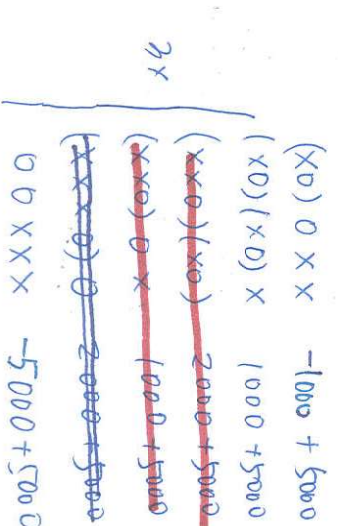 (XO) O X X -1000 + 5000
(XO)(XO) X 1000 + 5000
(XXO)(XO) 2000 + 5000
3x
(XXO) O X 1000 + 5000
(XXXO) O 2000 + 5000
O O X X X -5000 + 5000